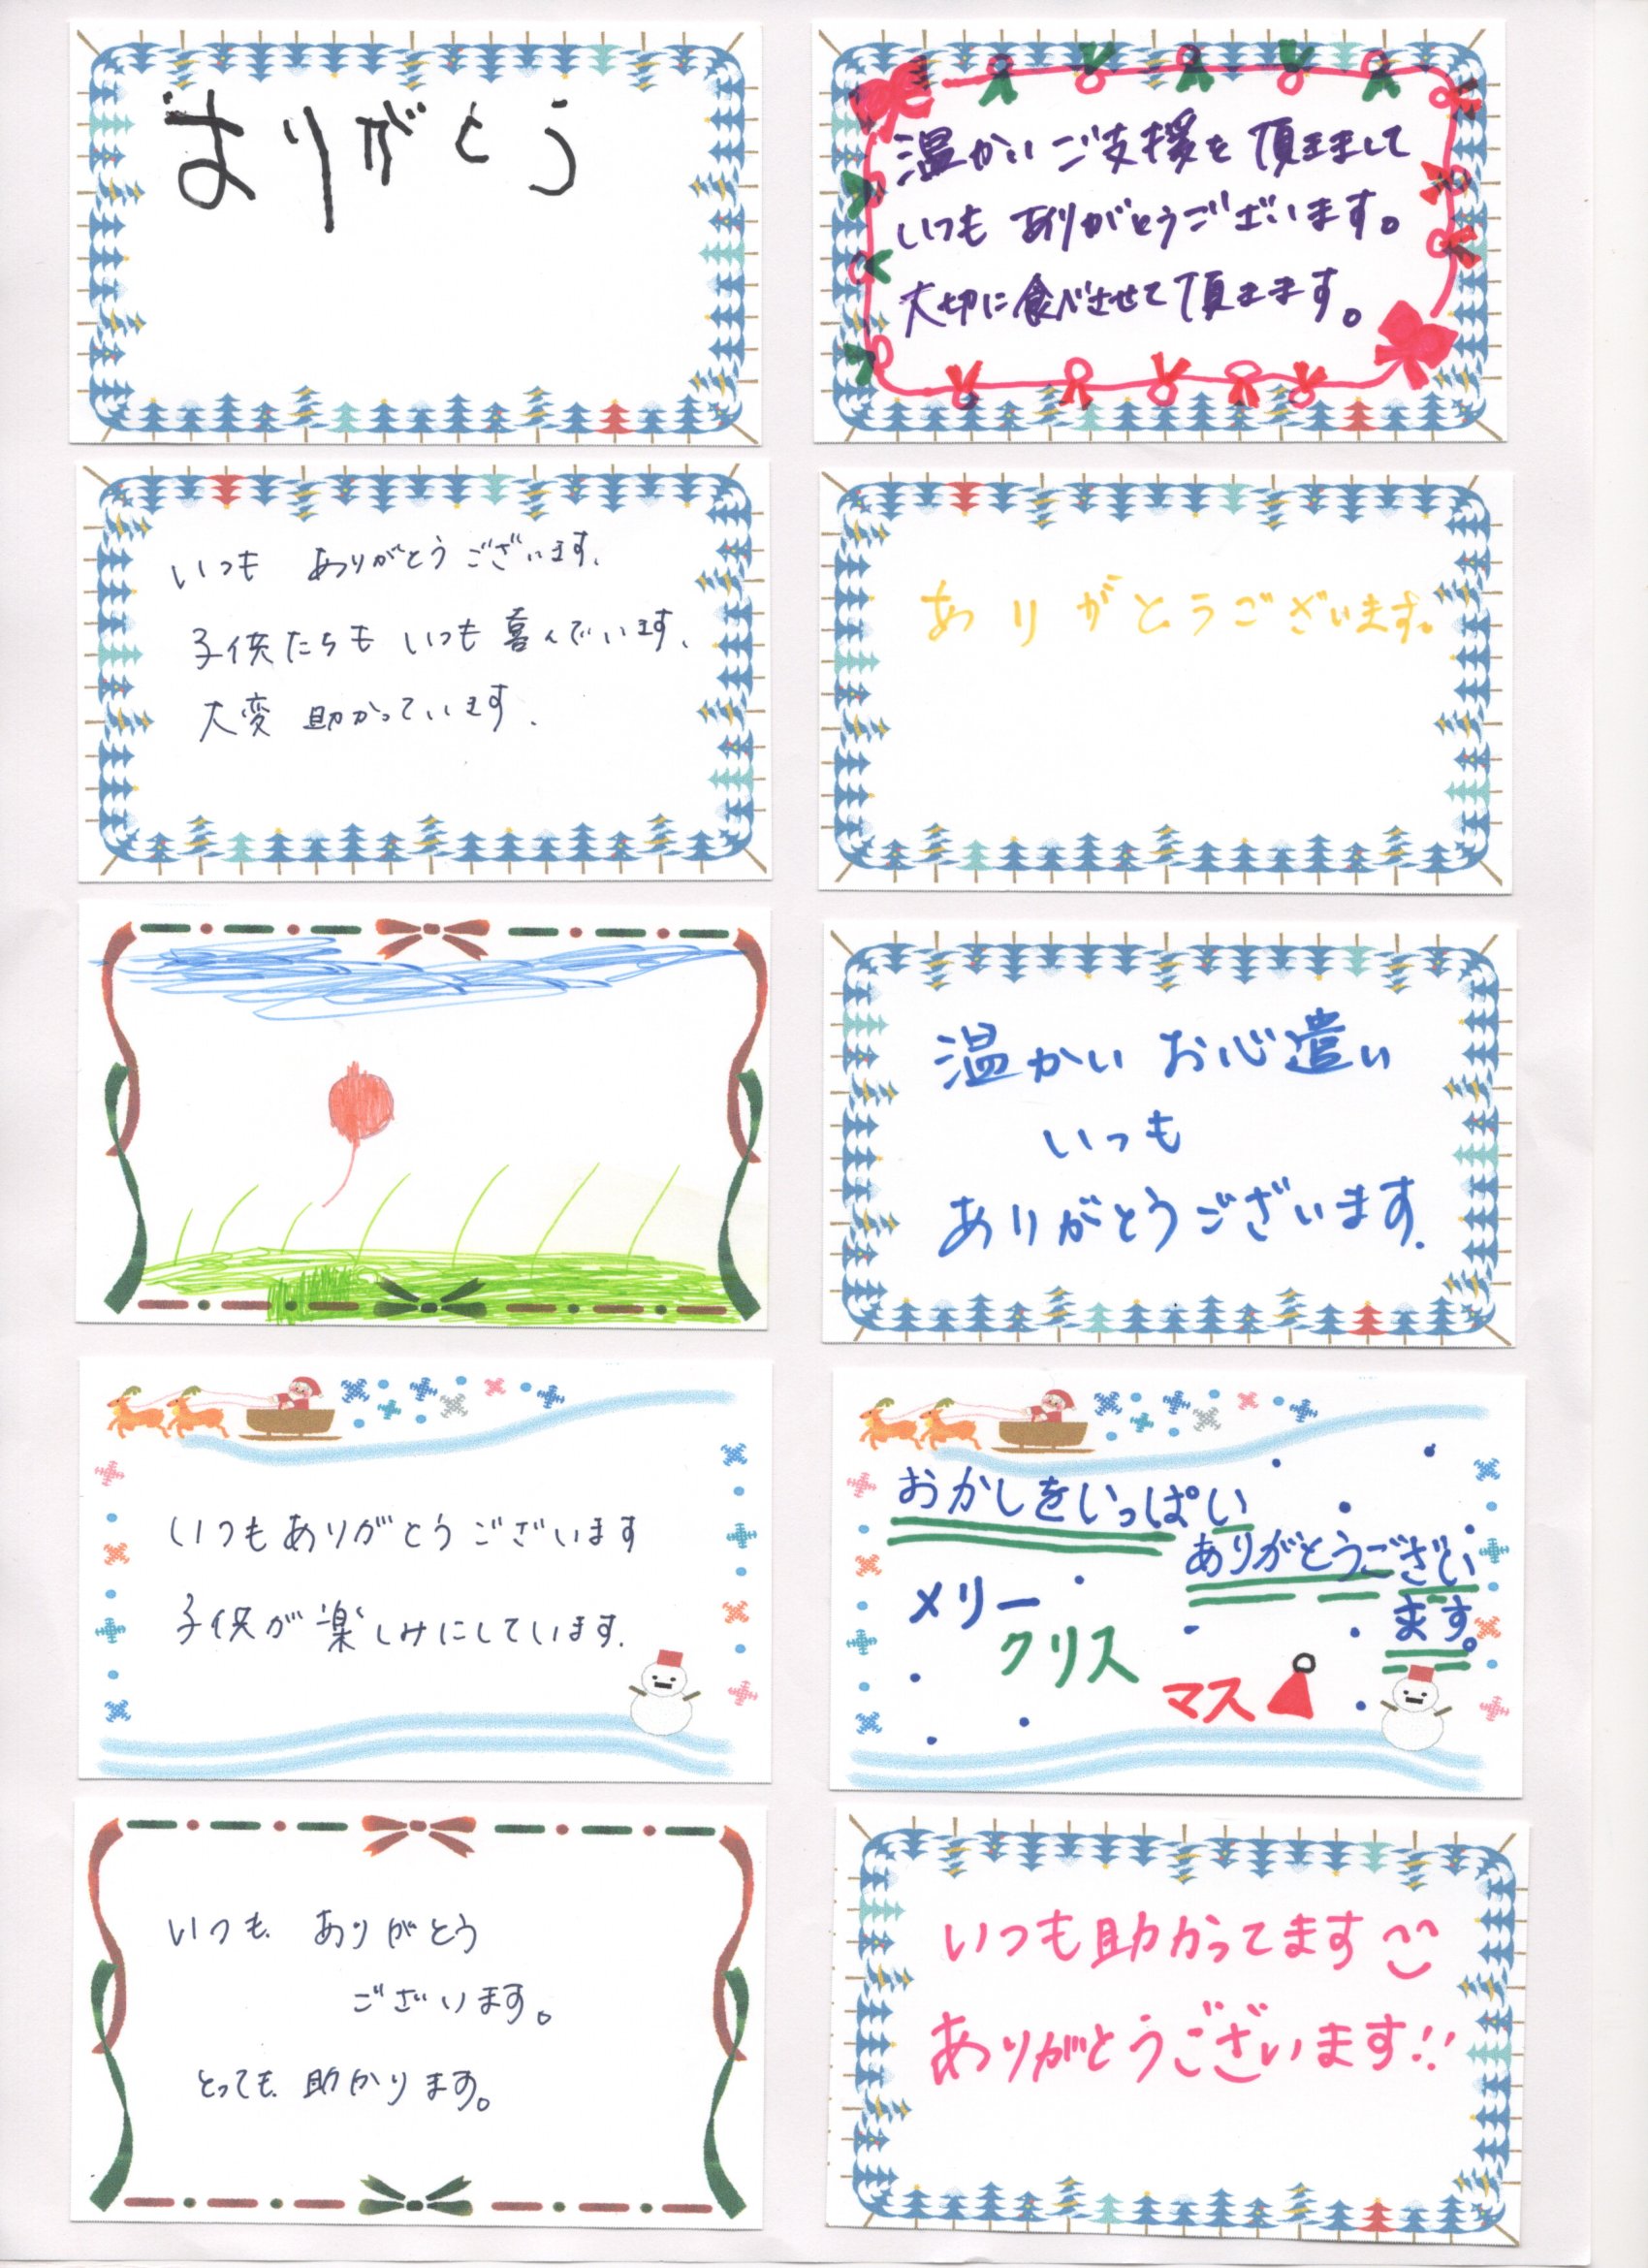 ありがとう
温かいご支援を頂きまして
いつもありがとうございます。
大切に食べさせて頂きます。
いつも ありがとうございます.
子供たちも いつも 喜んでいます.
大変 助かっています.
ありがとうございます。
温かい お心遣い
いつも
ありがとうございます.
いつもありがとうございます
子供が楽しみにしています.
おかしをいっぱい
ありがとうござい
ます。
メリー
クリス
マス
いつも ありがとう
ございます。
とっても 助かります。
いつも助かってます
ありがとうございます!!